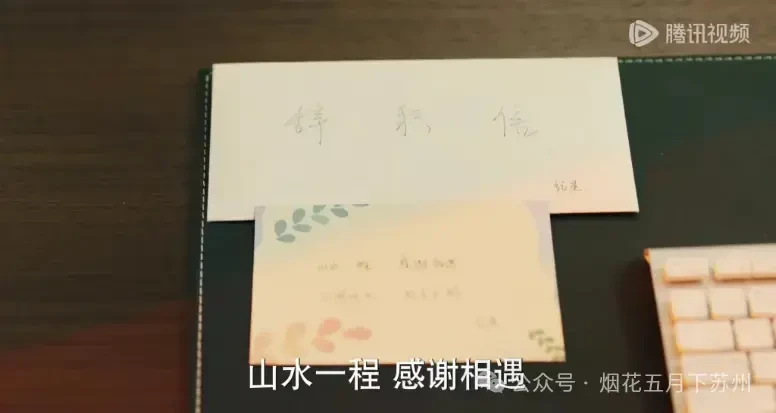 腾讯视频
辞职信
山水一程 感谢相遇
山水一程 感谢相遇
公众号·烟花五月下苏州